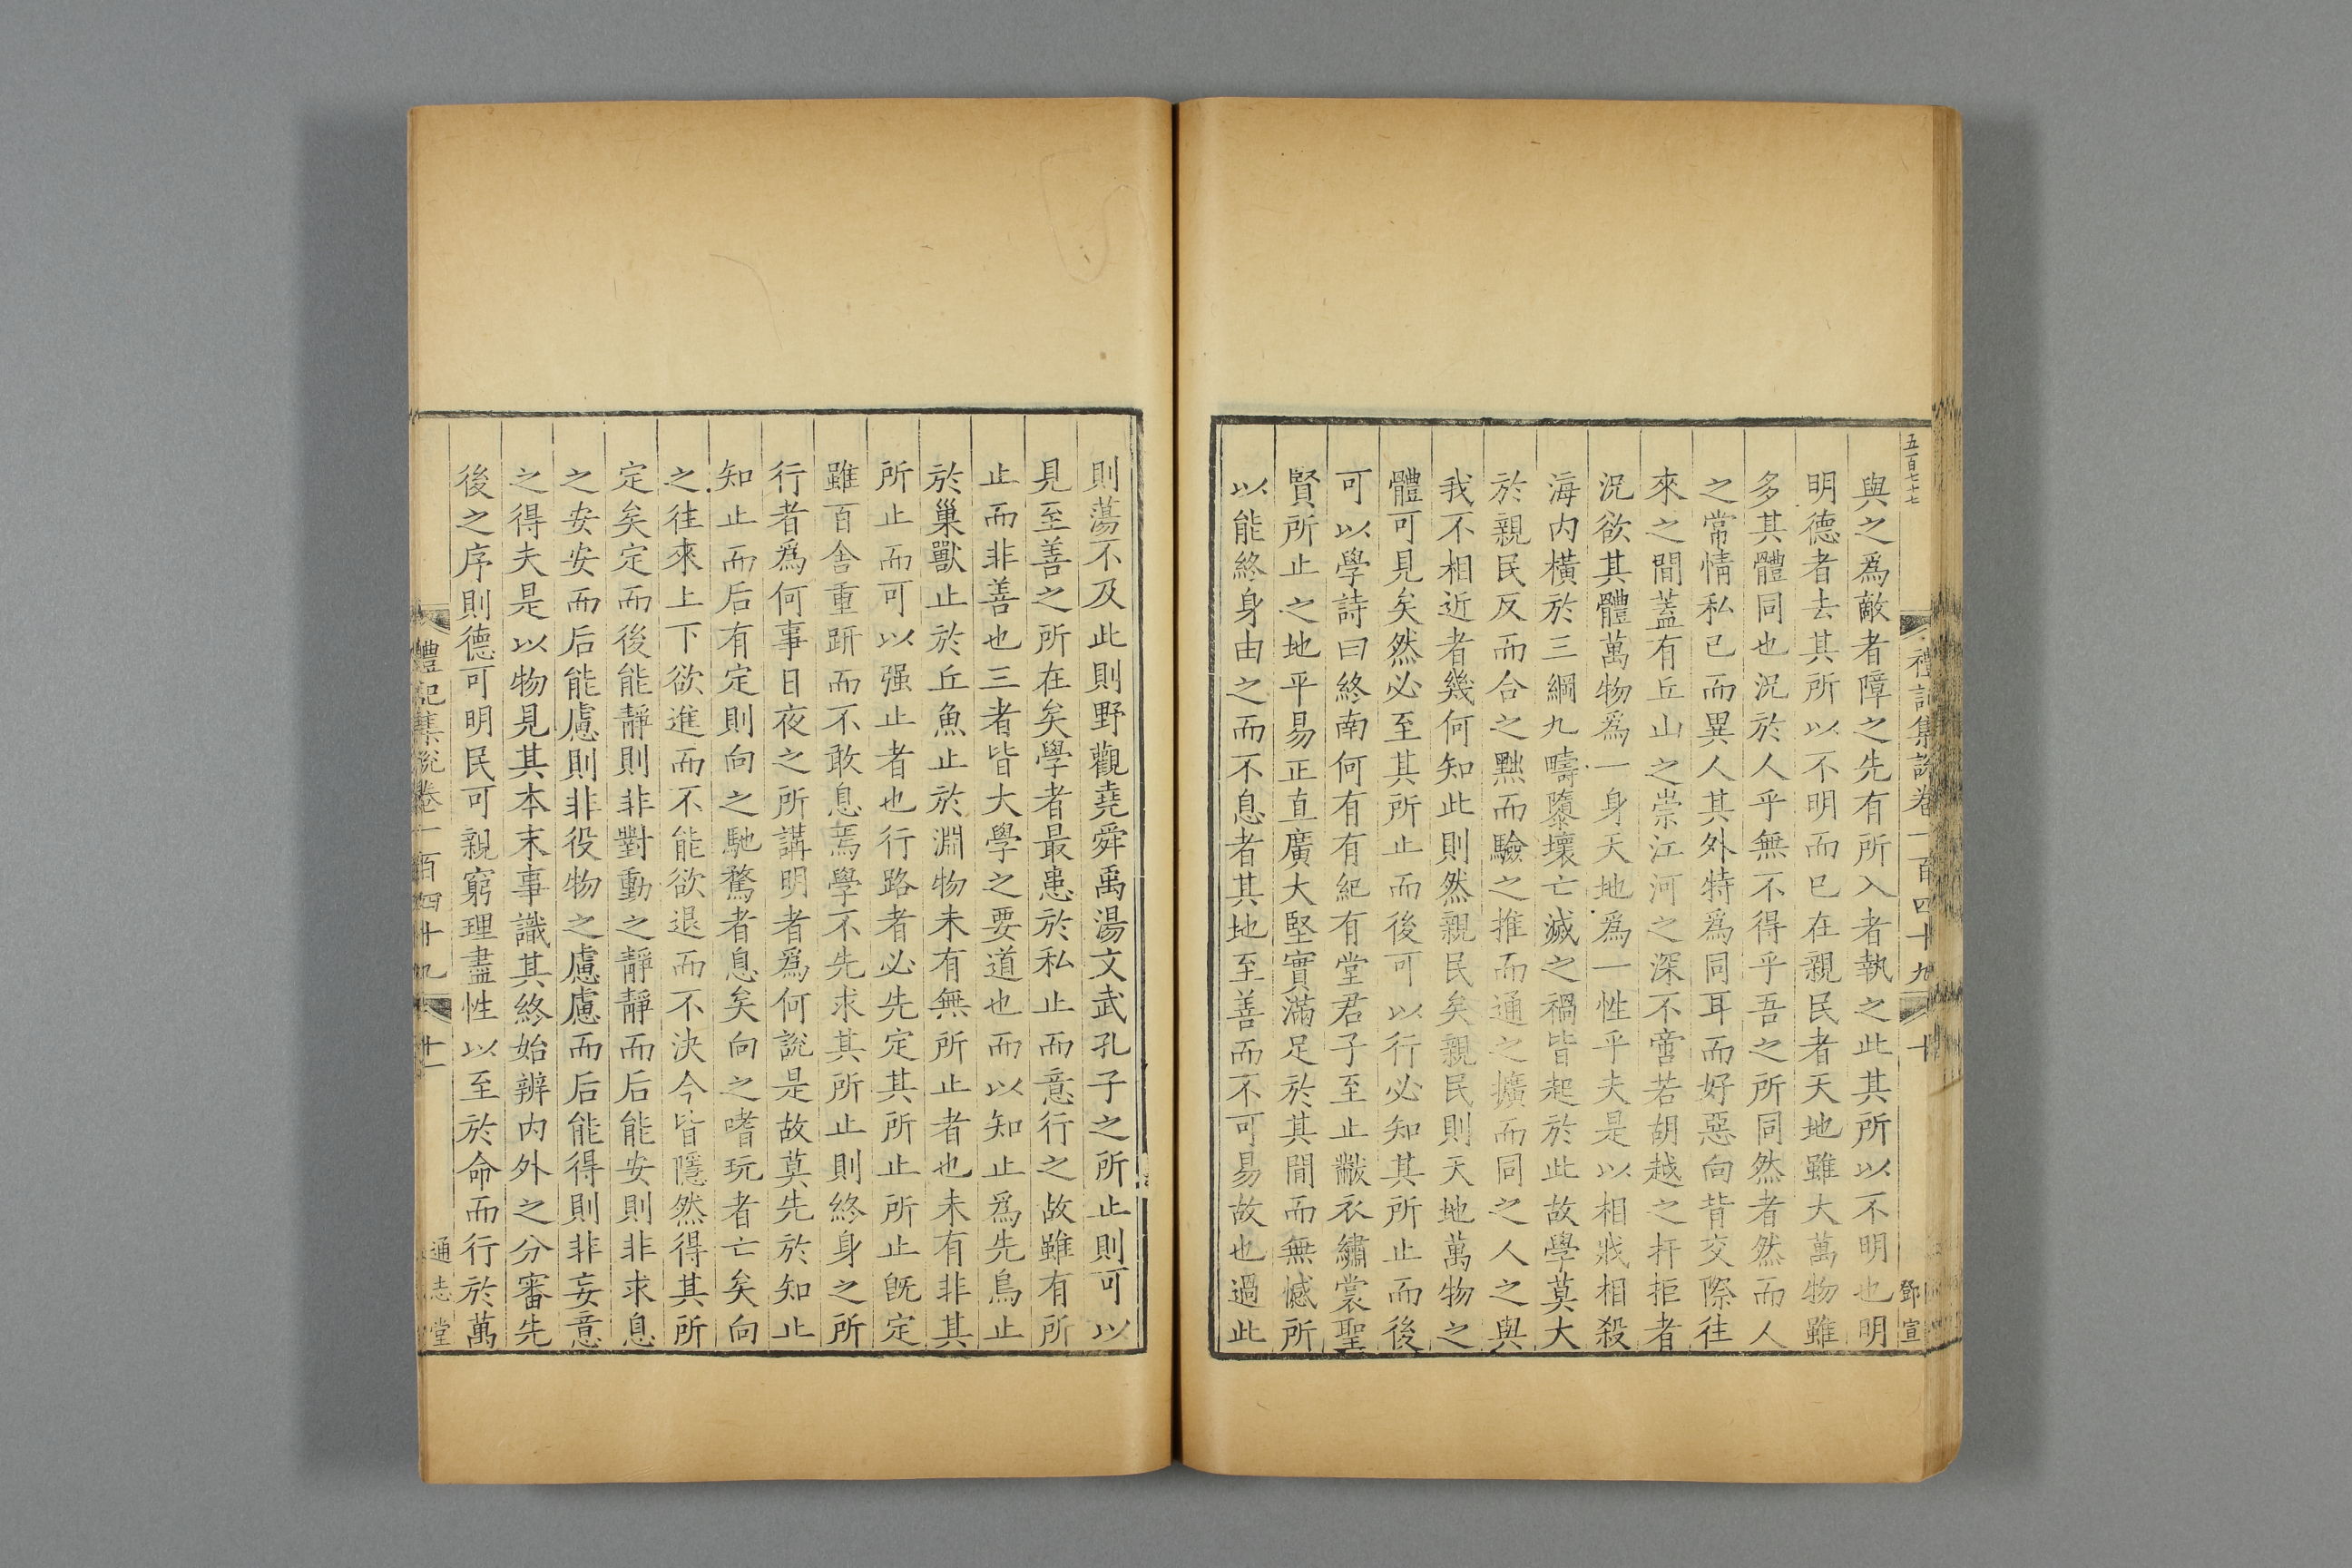 五百七十七
禮記集說卷一百四十九
十
鄧宣
與之爲敵者障之先有所入者執之此其所以不明也明
明德者去其所以不明而已在親民者天地雖大萬物雖
多其體同也況於人乎無不得乎吾之所同然者然而人
之常情私已而異人其外特爲同耳而好惡向背交際往
來之間蓋有丘山之崇江河之深不啻若胡越之扞拒者
況欲其體萬物爲一身天地爲一性乎夫是以相戕相殺
海内橫於三綱九疇隳壞亡滅之禍皆起於此故學莫大
於親民反而合之黙而驗之推而通之擴而同之人之與
我不相近者幾何知此則然親民矣親民則天地萬物之
體可見矣然必至其所止而後可以行必知其所止而後
可以學詩曰終南何有有紀有堂君子至止黻衣繡裳聖
賢所止之地平易正直廣大堅實滿足於其間而無憾所
以能終身由之而不息者其地至善而不可易故也過此
則蕩不及此則野觀堯舜禹湯文武孔子之所止則可以
見至善之所在矣學者最患於私止而意行之故雖有所
止而非善也三者皆大學之要道也而以知止爲先鳥止
於巢獸止於丘魚止於淵物未有無所止者也未有非其
所止而可以强止者也行路者必先定其所止所止旣定
雖百舍重趼而不敢息焉學不先求其所止則終身之所
行者爲何事日夜之所講明者爲何說是故莫先於知止
知止而后有定則向之馳騖者息矣向之嗜玩者亡矣向
之往來上下欲進而不能欲退而不決今皆隱然得其所
定矣定而後能靜則非對動之靜靜而后能安則非求息
之安安而后能慮則非役物之慮慮而后能得則非妄意
之得夫是以物見其本末事識其終始辨内外之分審先
後之序則德可明民可親窮理盡性以至於命而行於萬
禮記集說卷一百四十九
十一
通志堂